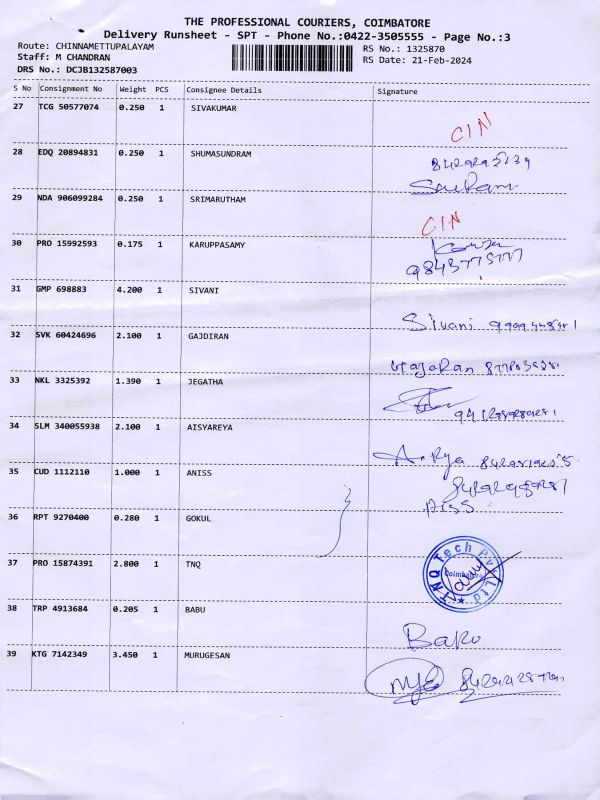 THE PROFESSIONAL COURIERS, COIMBATORE
Delivery Runsheet - SPT - Phone No.:0422-3505555 - Page No.:3
Route: CHINNAMETTUPALAYAM RS No.: 1325870
Staff: M CHANDRAN RS Date: 21-Feb-2024
DRS No.: DCJB132587003
S No Consignment No Weight PCS Consignee Details Signature
27 TCG 50577074 0.250 1 SIVAKUMAR
CIN
28 EDQ 20894831 0.250 1 SHUMASUNDRAM
29 NDA 906099284 0.250 1 SRIMARUTHAM
CIN
30 PRO 15992593 0.175 1 KARUPPASAMY
31 GMP 698883 4.200 1 SIVANI
Sivani
32 SVK 60424696 2.100 1 GAJDIRAN
33 NKL 3325392 1.390 1 JEGATHA
34 SLM 340055938 2.100 1 AISYAREYA
35 CUD 1112110 1.000 1 ANISS
36 RPT 9270400 0.280 1 GOKUL
37 PRO 15874391 2.800 1 TNQ
TNQ Tech Pvt Ltd
Coimbatore
38 TRP 4913684 0.205 1 BABU
39 KTG 7142349 3.450 1 MURUGESAN